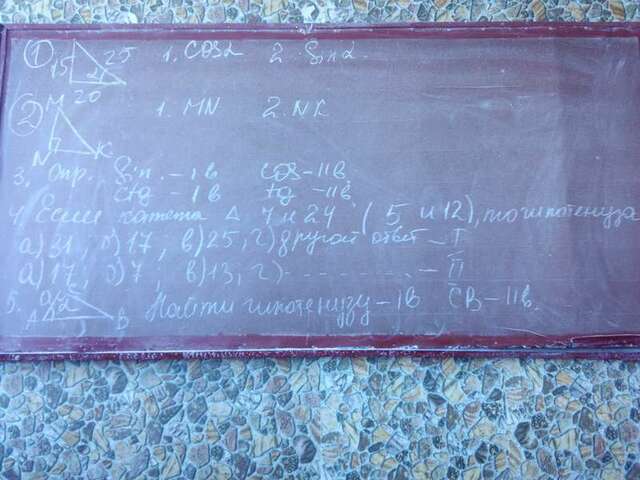 1 15 25 α 20 1. cosα 2. Sinα.
2 M N K 1. MN 2. NK
3. Опр. Sin. – I в cos – II в.
ctg – I в tg – II в
4. Если катета Δ 7 и 24 (5 и 12), то гипотенуза
а) 31; б) 17; в) 25; г) другой ответ – I
а) 17; б) 7; в) 13; г) - - - - - - - – II
5. A B Найти гипотенузу – I в CB – II в.